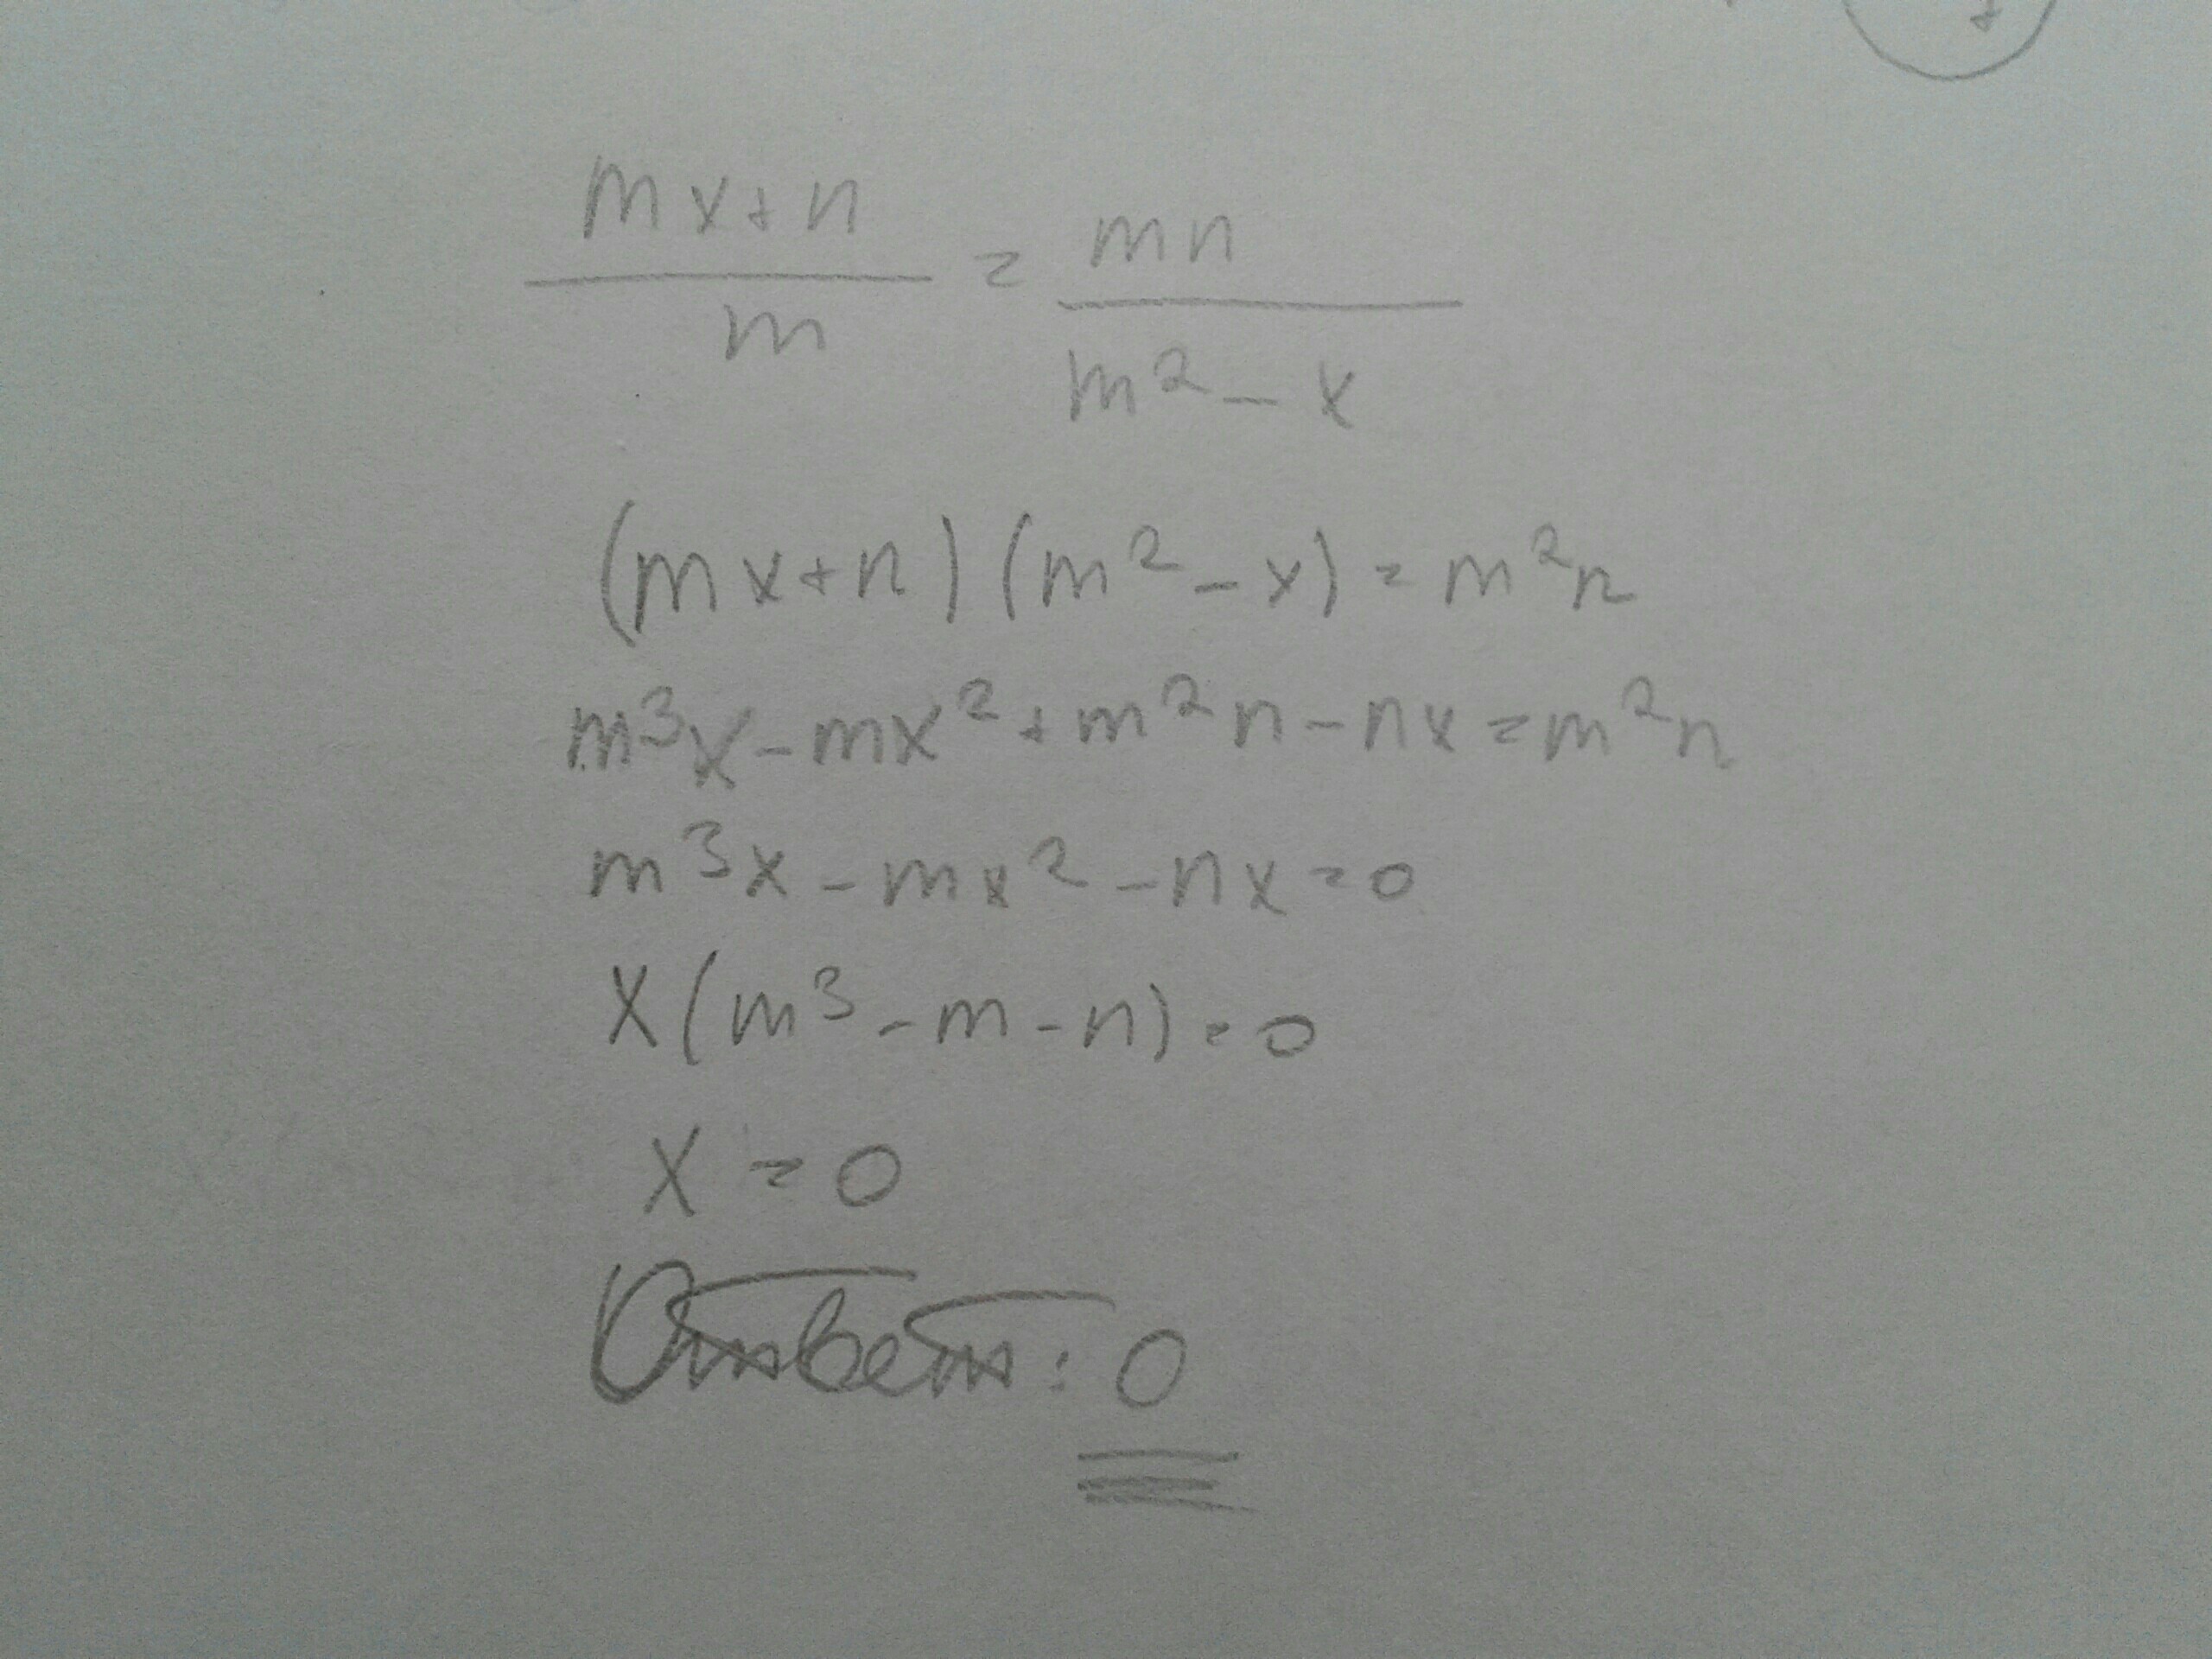 mx+n / m = mn / m² - x
(mx+n)(m²-x)=m²n
m³x-mx²+m²n-nx=m²n
m³x-mx²-nx=0
x(m³-m-n)=0
x=0
Ответ: 0